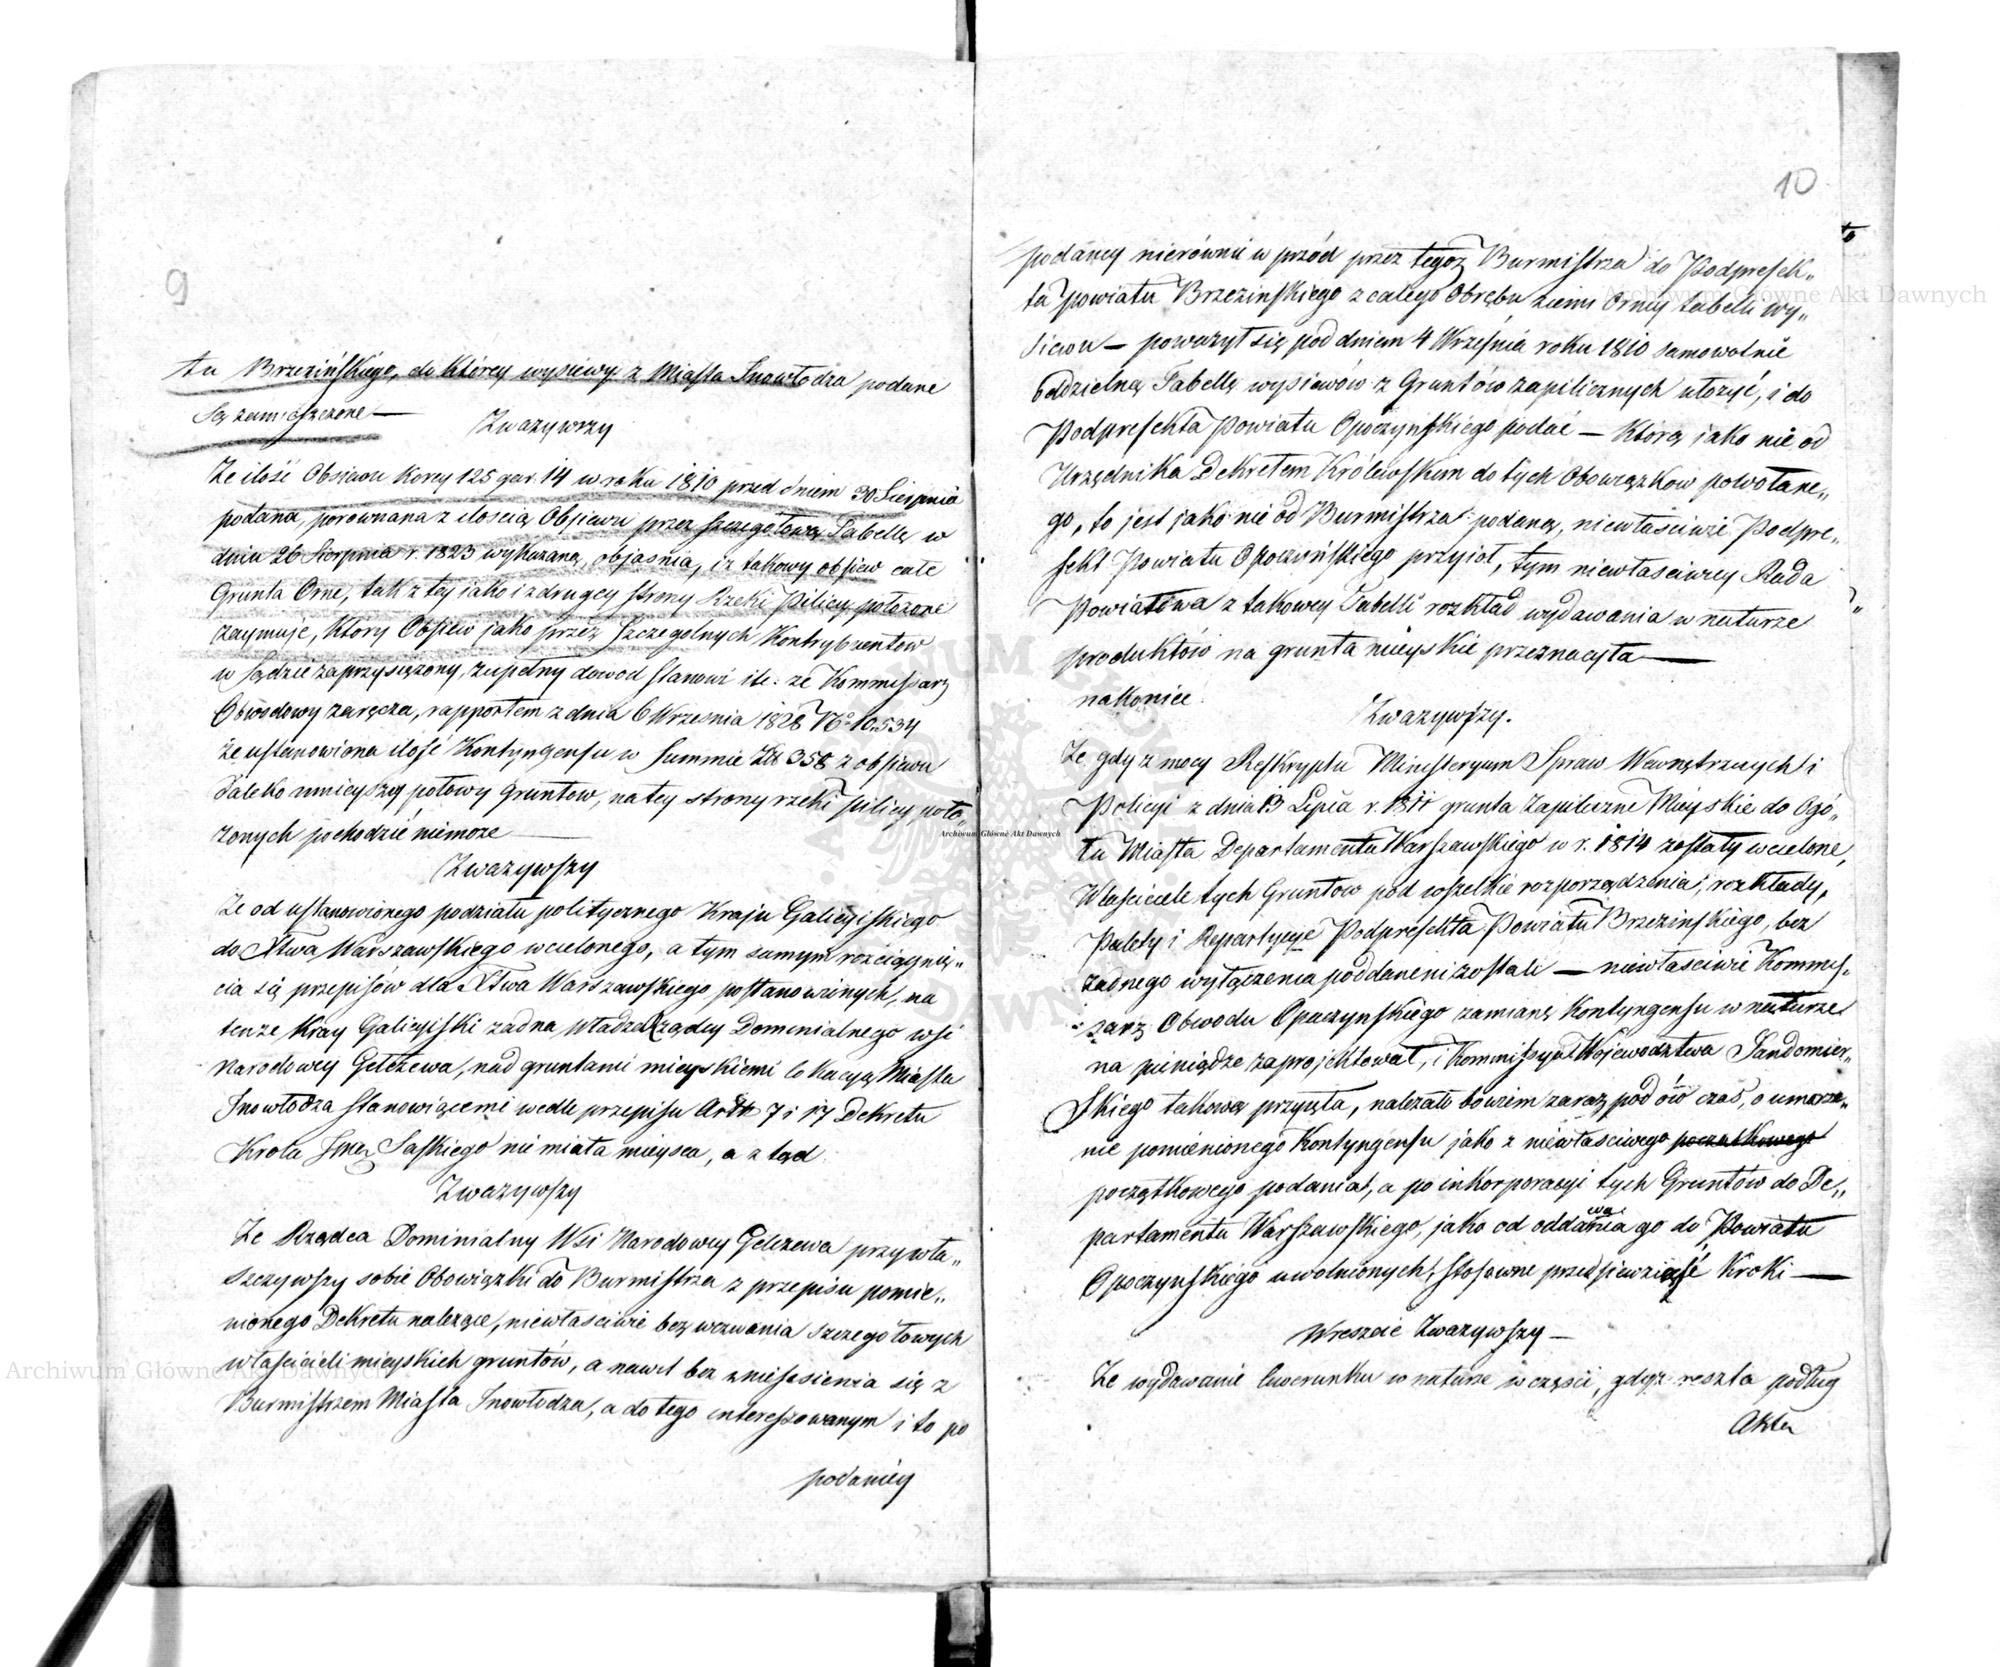 9
tu Brzezińskiego, do którey wysiewy z Miasta Inowłodza podane
są zamieszczone —
Zważywszy
Że ilość Obsiewu korcy 125 gar. 14 w roku 1810 przed dniem 30 Sierpnia
podana, porównana z ilością Obsiewu przez szczegółową Tabellę w
dniu 26 Sierpnia r. 1823 wykazaną, objaśnia, iż takowy obsiew całe
Grunta Orne, tak z tey jako i z drugiey strony Rzeki Pilicy położone
zaymuje, który Obsiew jako przez Szczególnych Kontrybuentów
w Sądzie zaprzysiężony, zupełny dowód stanowi ile: że Kommissarz
Obwodowy zaręcza, rapportem z dnia 6 Września 1828 No 10.534
że ustanowiona ilość Kontyngensu w Summie Zł 358 z obsiewu
daleko mnieyszey połowy Gruntów, na tey strony rzeki Pilicy poło„
żonych pochodzić niemoże —
Zważywszy
Że od ustanowionego podziału politycznego Kraju Galicyiskiego
do Xtwa Warszawskiego wcielonego, a tym samym rozciągnię„
cia się przepisów dla Xtwa Warszawskiego postanowionych, na
tenże Kray Galicyiski żadna Władza Rządcy Dominialnego wsi
Narodowey Gelczewa, nad gruntami mieyskiemi lokacyą Miasta
Inowłodza stanowiącemi wedle przepisu Artt 7 i 17 Dekretu
Króla Jmci Saskiego nie miała mieysca, a ztąd
Zważywszy
Że Rządca Dominialny Wsi Narodowey Gelczewa przywła„
szczywszy sobie Obowiązki do Burmistrza z przepisu pomie„
nionego Dekretu należące, niewłaściwie bez wezwania szczegółowych
właścicieli mieyskich gruntów, a nawet bez zniesienia się z
Burmistrzem Miasta Inowłodza, a do tego interessowanym i to po
podaniey
10
podaney nierównie w przód przez tegoż Burmistrza do Podprefek„
ta Powiatu Brzezinskiego z całego Obrębu ziemi Orney tabelli wy„
siewu — poważył się pod dniem 4 Września roku 1810 samowolnie
oddzielną Tabellę wysiewów z Gruntów zapilicznych ułożyć, i do
Podprefekta Powiatu Opoczynskiego podać — którą jako nie od
Urzędnika Dekretem Królewskim do tych Obowiązków powołane„
go, to jest jako nie od Burmistrza podaną, niewłaściwie Podpre„
fekt Powiatu Opoczyńskiego przyiął, tym niewłaściwiey Rada
Powiatowa z takowey Tabelli rozkład wydawania w naturze
produktów na grunta mieyskie przeznaczyła —
nakoniec
Zważywszy.
Że gdy z mocy Reskryptu Ministeryum Spraw Wewnętrznych i
Policyi z dnia 13 Lipca r. 1811 grunta Zapiliczne Mieyskie do Ogó„
łu Miasta Departamentu Warszawskiego w r. 1814 zostały wcielone,
Właściciele tych Gruntów pod wszelkie rozporządzenia, rozkłady,
Palety i Repartycye Podprefekta Powiatu Brzezinskiego, bez
żadnego wyłączenia poddanemi zostali — niewłaściwie Kommis„
sarz Obwodu Opoczynskiego zamianę Kontyngensu w naturze
na pieniądze zaprojektował, i Kommissya Województwa Sandomier„
skiego takową przyięła, należało bowiem zaraz pod ów czas, o umorze„
nie pomienionego Kontyngensu jako z niewłaściwego początkowego
początkowego podania, a po inkorporacyi tych Gruntów do De„
partamentu Warszawskiego, jako od oddawania go do Powiatu
Opoczynskiego uwolnionych, stosowne przedsiewziąść Kroki —
Wreszcie Zważywszy —
Że wydawanie liwerunku w naturze w części, gdyż reszta podług
Aktu